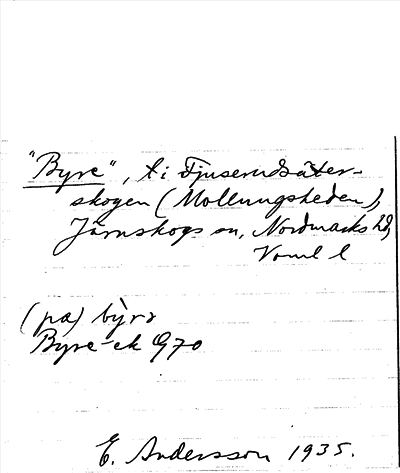 "Byre", t. i Fjuserudsäter-
skogen (Mollungsheden),
Järnskogs sn, Nordmarks hd,
Vrml l
(pa) byrə
Byre-ek G70
E. Andersson 1935.